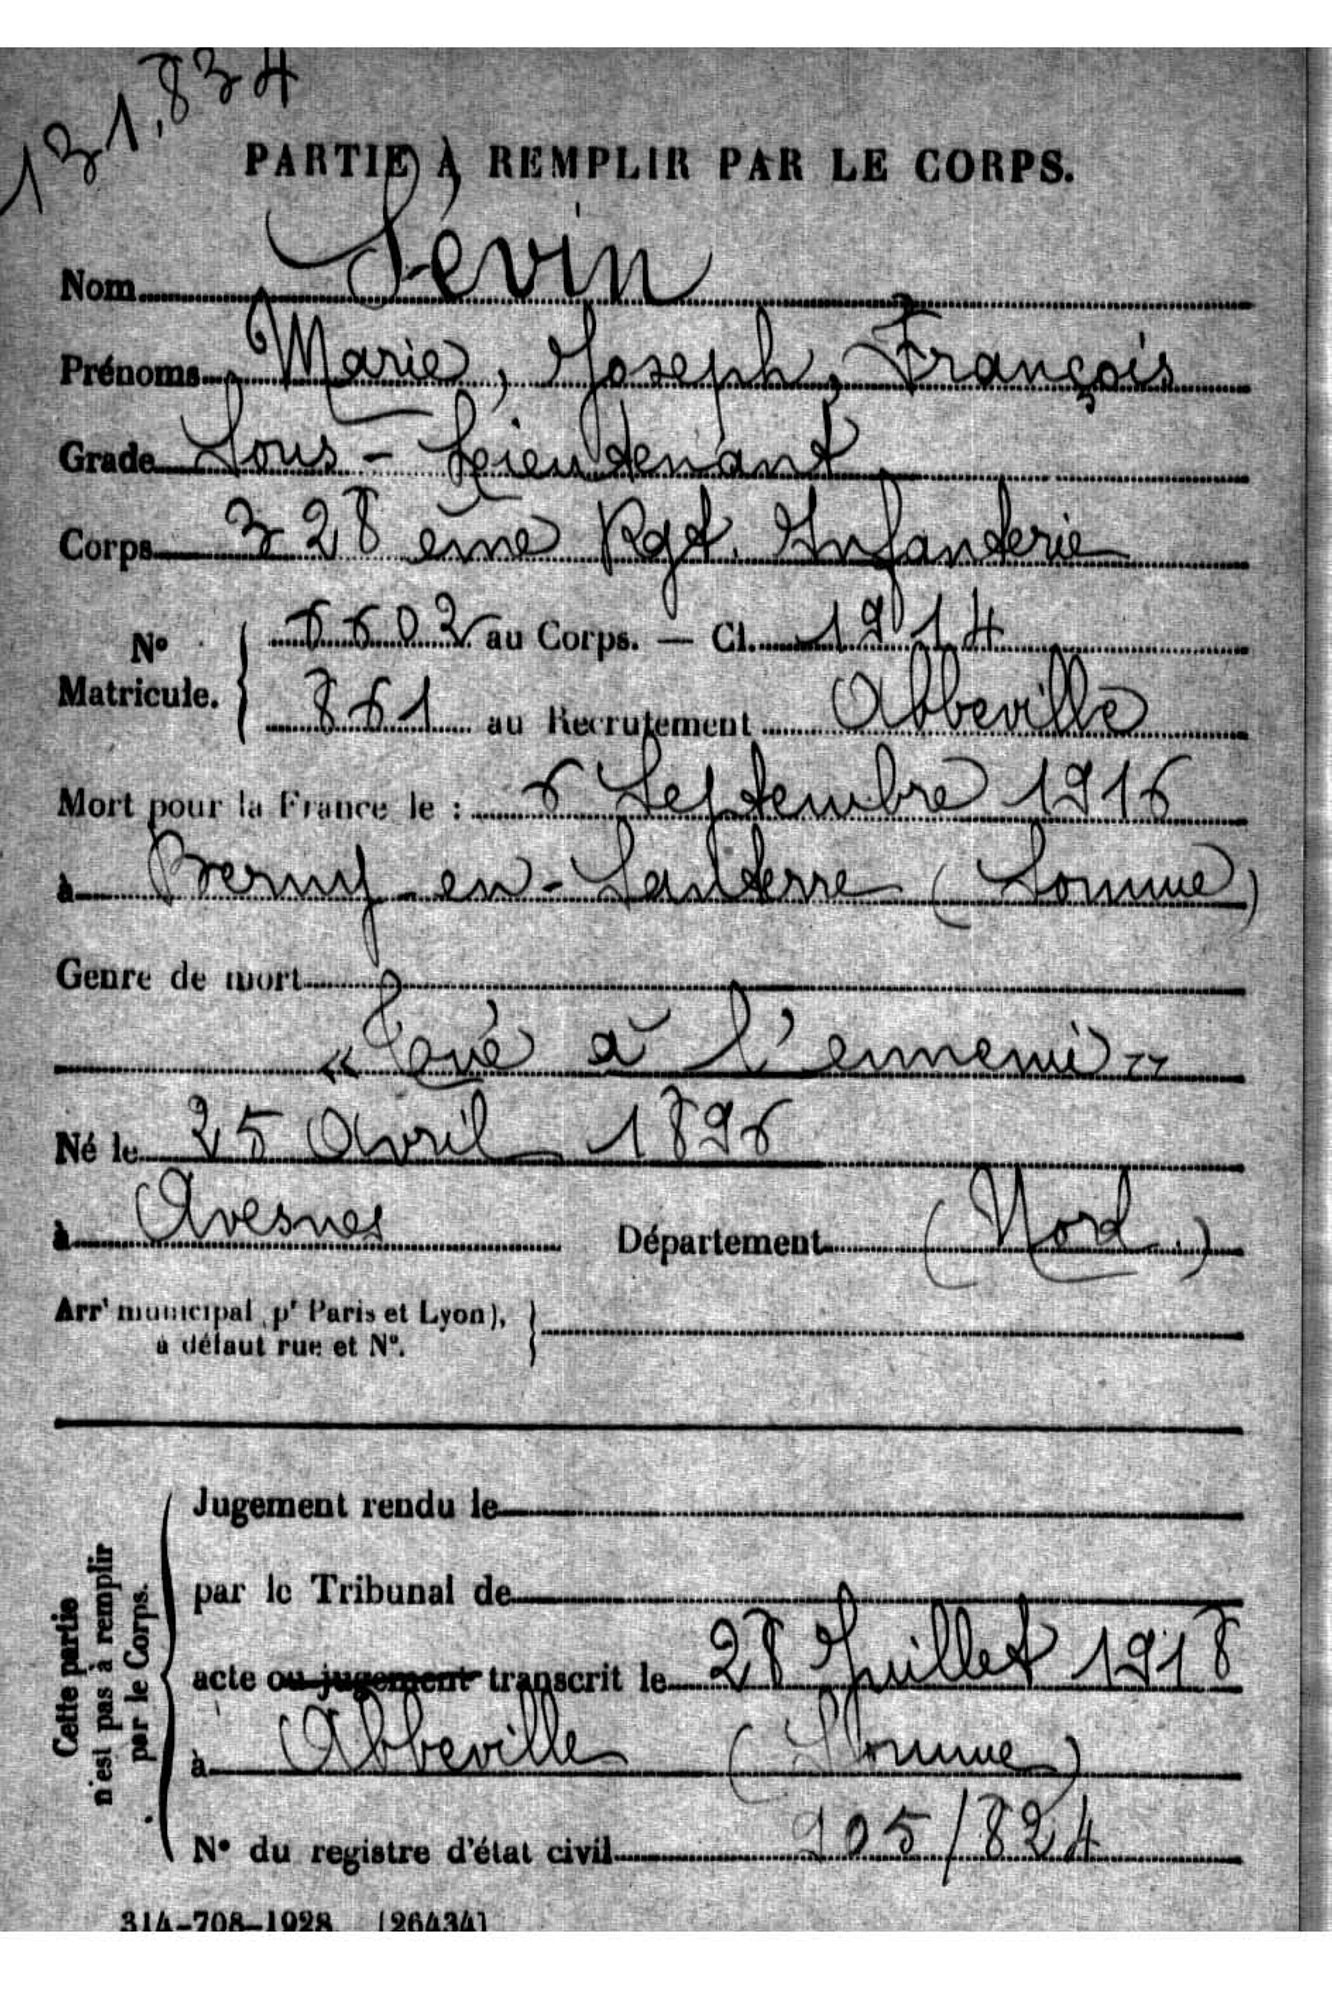 131,834
PARTIE À REMPLIR PAR LE CORPS.
Nom Sévin
Prénoms Marie, Joseph, François
Grade Sous-Lieutenant
Corps 328 ème Rgt. Infanterie
No Matricule. { 6602 au Corps. — Cl. 1914
861 au Recrutement Abbeville
Mort pour la France le : 6 Septembre 1916
à Berny-en-Santerre (Somme)
Genre de mort
« Tué à l'ennemi »
Né le 25 Avril 1896
à Avesnes Département (Nord)
Arrt municipal pr Paris et Lyon),
à défaut rue et No.
Cette partie n'est pas à remplir par le Corps.
Jugement rendu le
par le Tribunal de
acte ou jugement transcrit le 28 Juillet 1918
à Abbeville (Somme)
No du registre d'état civil 905/824
314-708-1928 [26434]